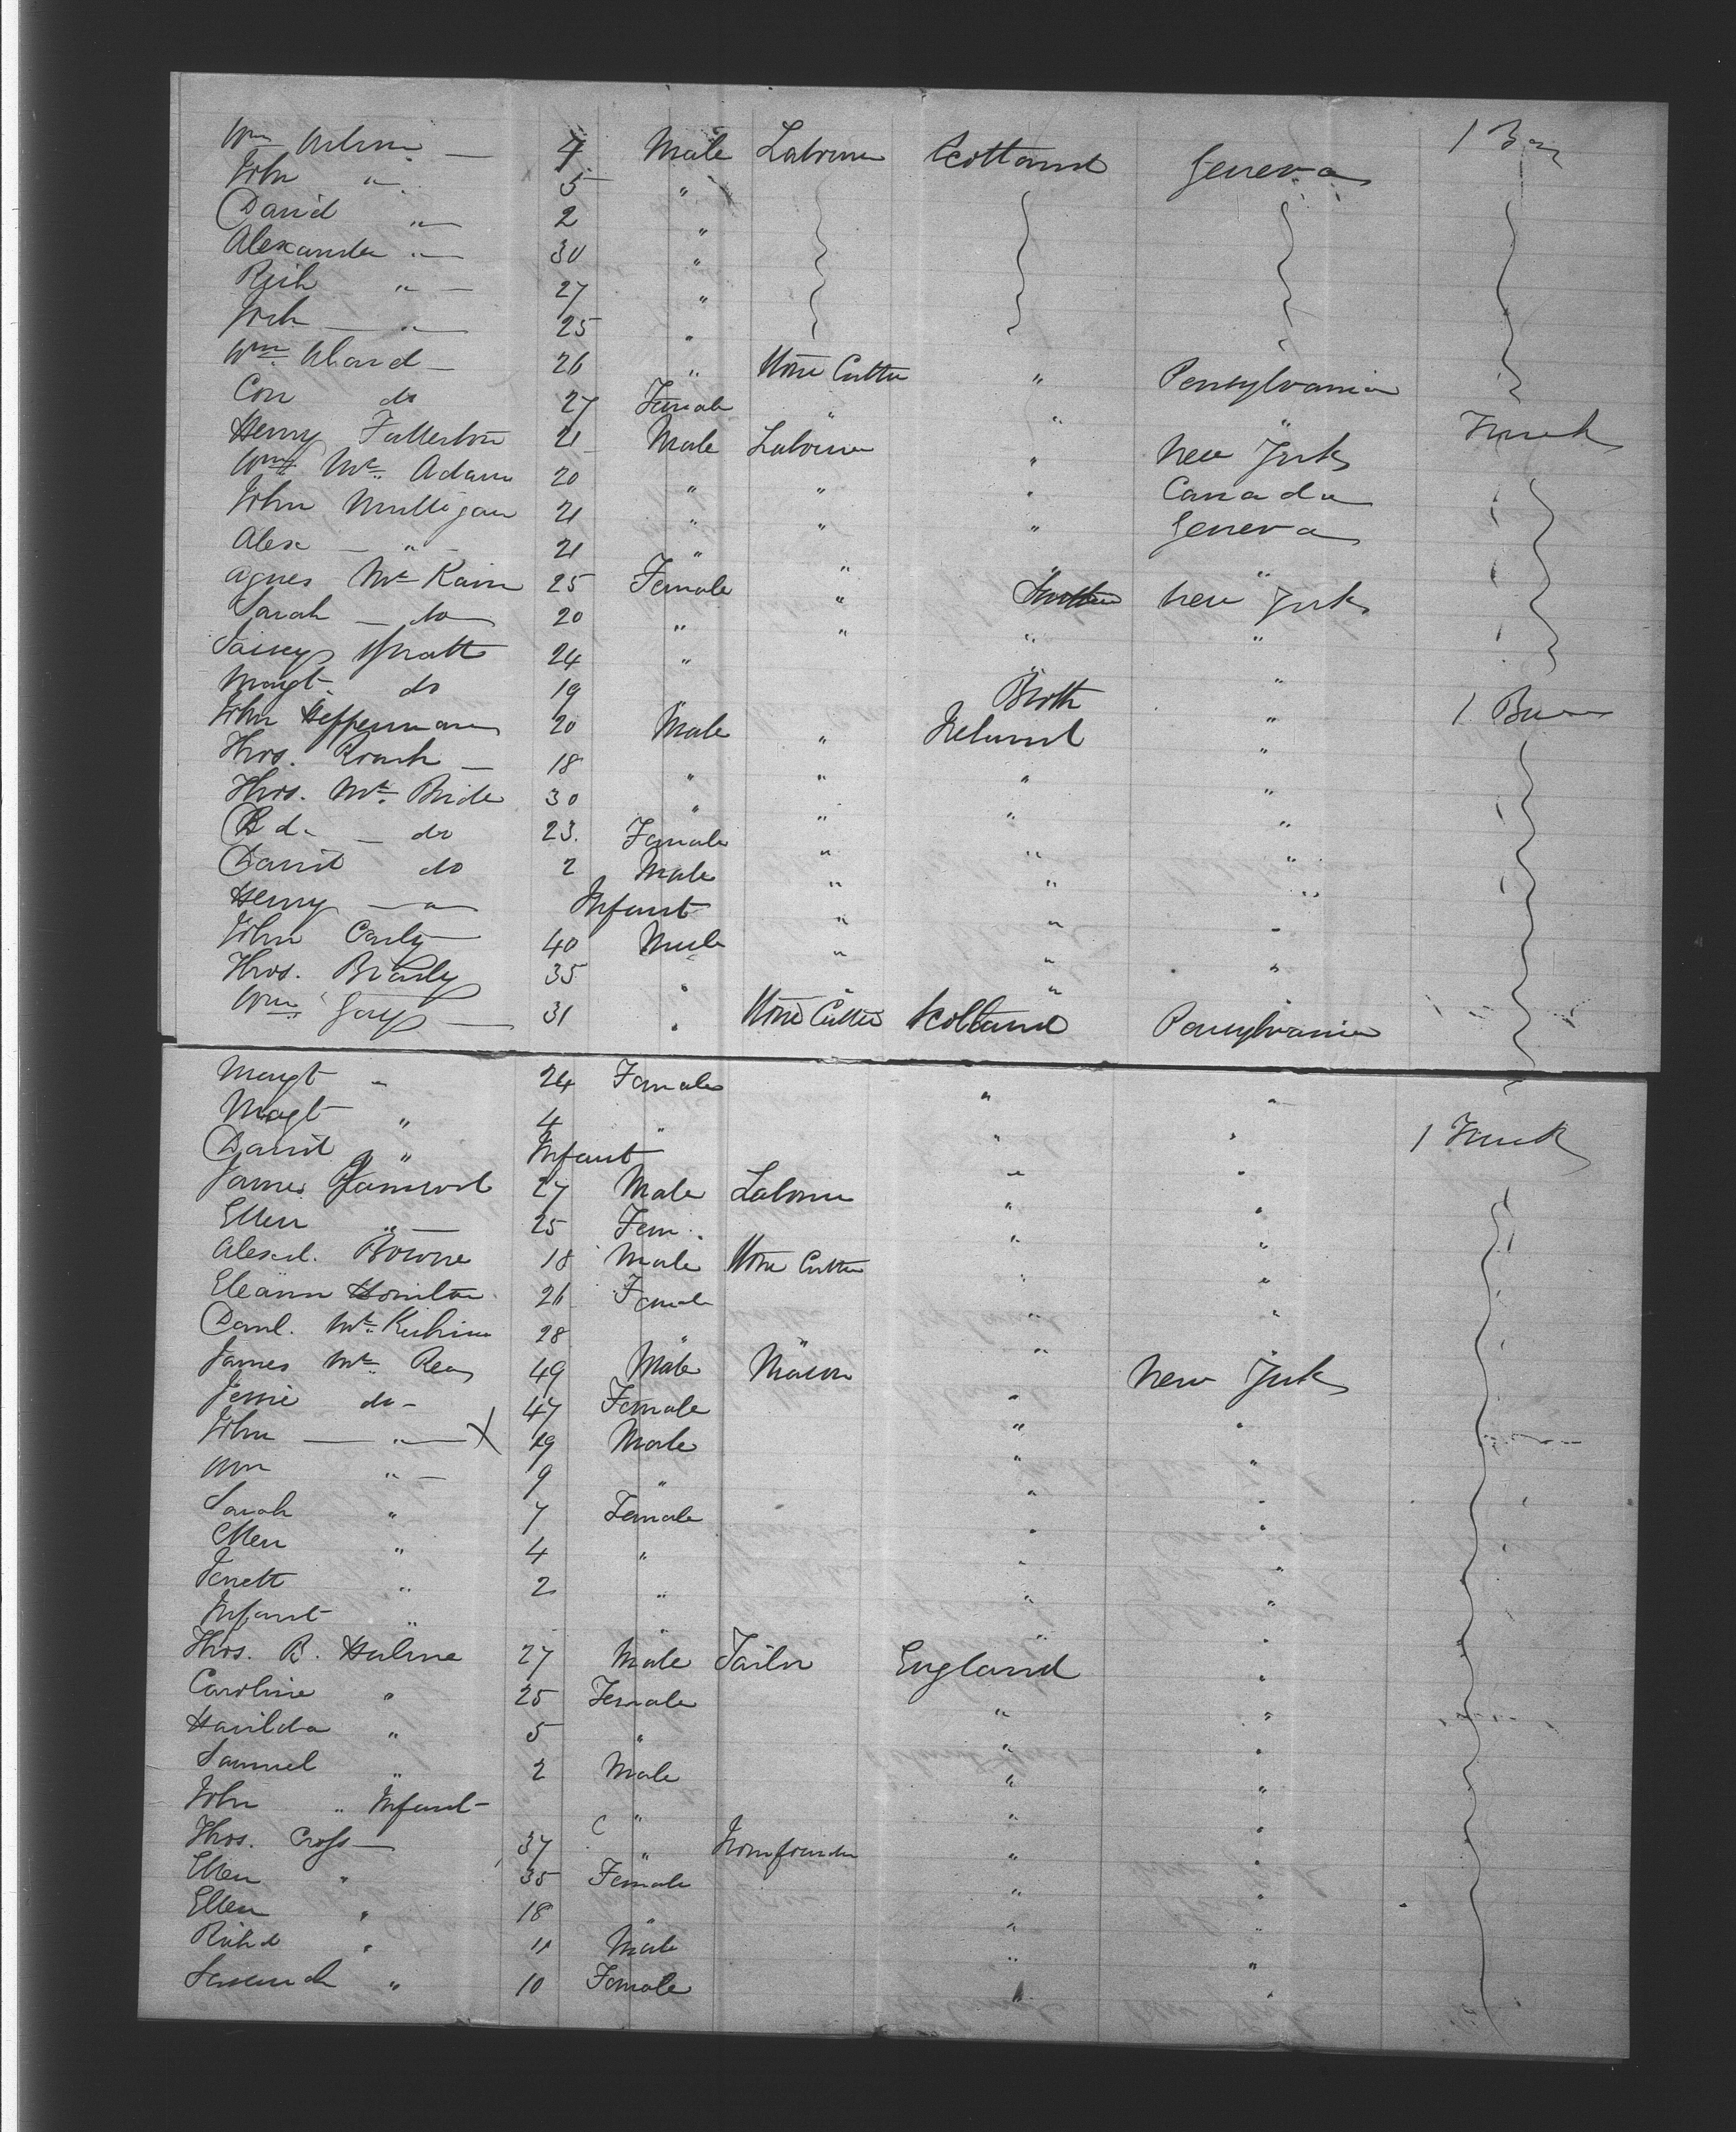 Wm Wilson — 7 Male Laborer Scotland Geneva 1 Box
John " 5 "
David " 2 "
Alexander " 30 "
Rich " 27 "
John " 25 "
Wm 26 " Stone Cutter " Pensylvania
Con do 27 Female " " "
Henry Fullerton 21 Male Laborer " New York Trunk
Wm Mc Adam 20 " " " Canada
John Mulligan 21 " " " Geneva
Alex " 21 " " " "
Agnes Mc Kain 25 Female " New York
Sarah do 20 " " " "
24 " "
Margt do 19 "
John Heffernan 20 Male " Ireland " 1 Box
Thos. Roach 18 " " " "
Thos. Mc Bride 30 " " " "
do 23. Female " " "
David do 2 Male " " "
Henry " Infant " " "
John 40 Male " " "
Thos. Brady 35 " " "
Wm Gay 31 " Stone Cutter Scotland Pensylvania
Margt " 24 Female " "
Magt " 4 " " "
David " Infant " " 1 Trunk
James 27 Male Laborer " "
Ellen " 25 Fem. " "
Alexd. Bowne 18 Male Stone Cutter " "
Eleann Hamilton 26 Female " "
Danl. Mc 28 " " "
James Mc Rea 49 Male Mason " New York
Jessie do 47 Female " "
John — " — X 19 Male " "
Wm " 9 " " "
Sarah " 7 Female " "
Ellen " 4 " " "
Jenett " 2 " " "
Infant " " " "
Thos. B. Hulme 27 Male Tailor England "
Caroline " 25 Female " "
" 5 " " "
Samuel " 2 Male " "
John " Infant " " "
Thos. Cross 37 " Iron founder " "
Ellen " 35 Female " "
Ellen " 18 " " "
Richd " 11 Male " "
" 10 Female " "